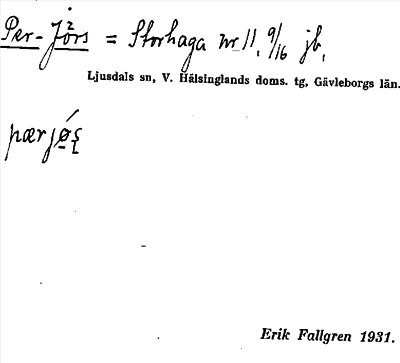 Per-Jörs = Storhaga nr 11, 9/16 jb,
Ljusdals sn, V. Hälsinglands doms. tg, Gävleborgs län.
Erik Fallgren 1931.